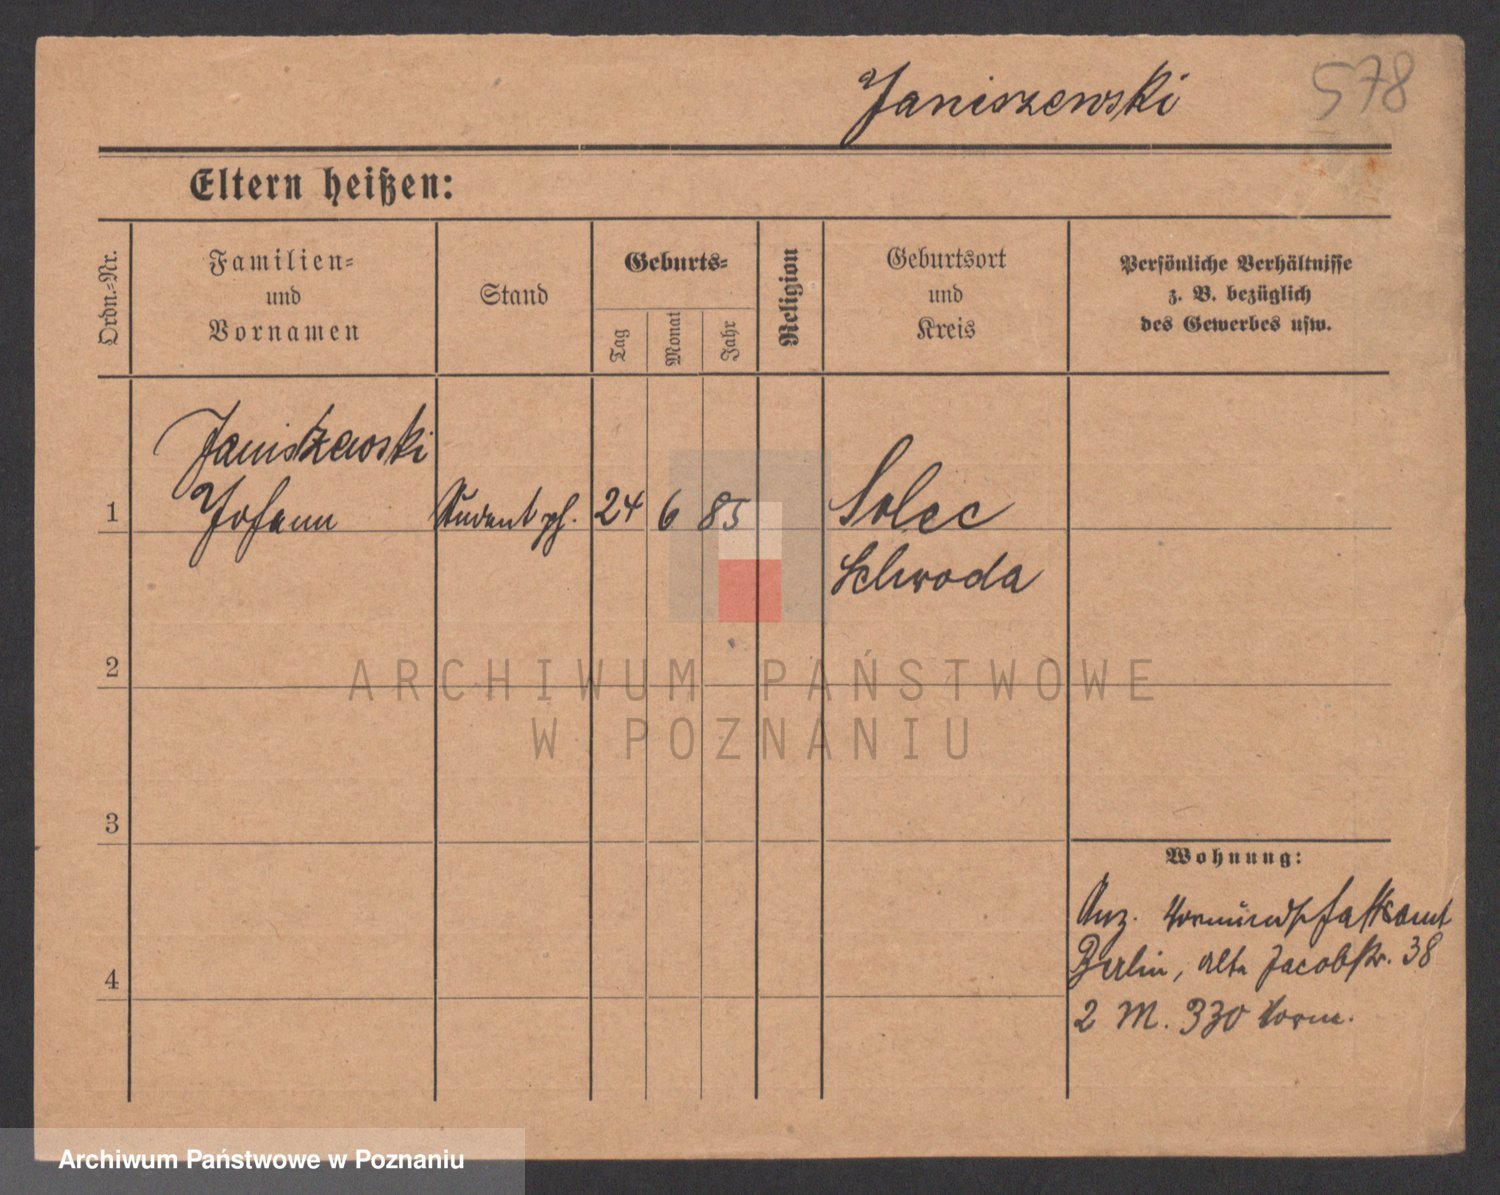 Janiszewski
578
Eltern heißen:
Ordn.-Nr.
Familien-
und
Vornamen
Stand
Geburts-
Tag
Monat
Jahr
Religion
Geburtsort
und
Kreis
Persönliche Verhältnisse
z. B. bezüglich
des Gewerbes usw.
Janiszewski
1
Johann
Student ph.
24
6
85
Solec
Schroda
2
ARCHIWUM PAŃSTWOWE
W POZNANIU
3
Wohnung:
Anz. Vormundschaftsamt
Berlin, alte Jacobstr. 38
4
2 M. 330 Vorm.
Archiwum Państwowe w Poznaniu